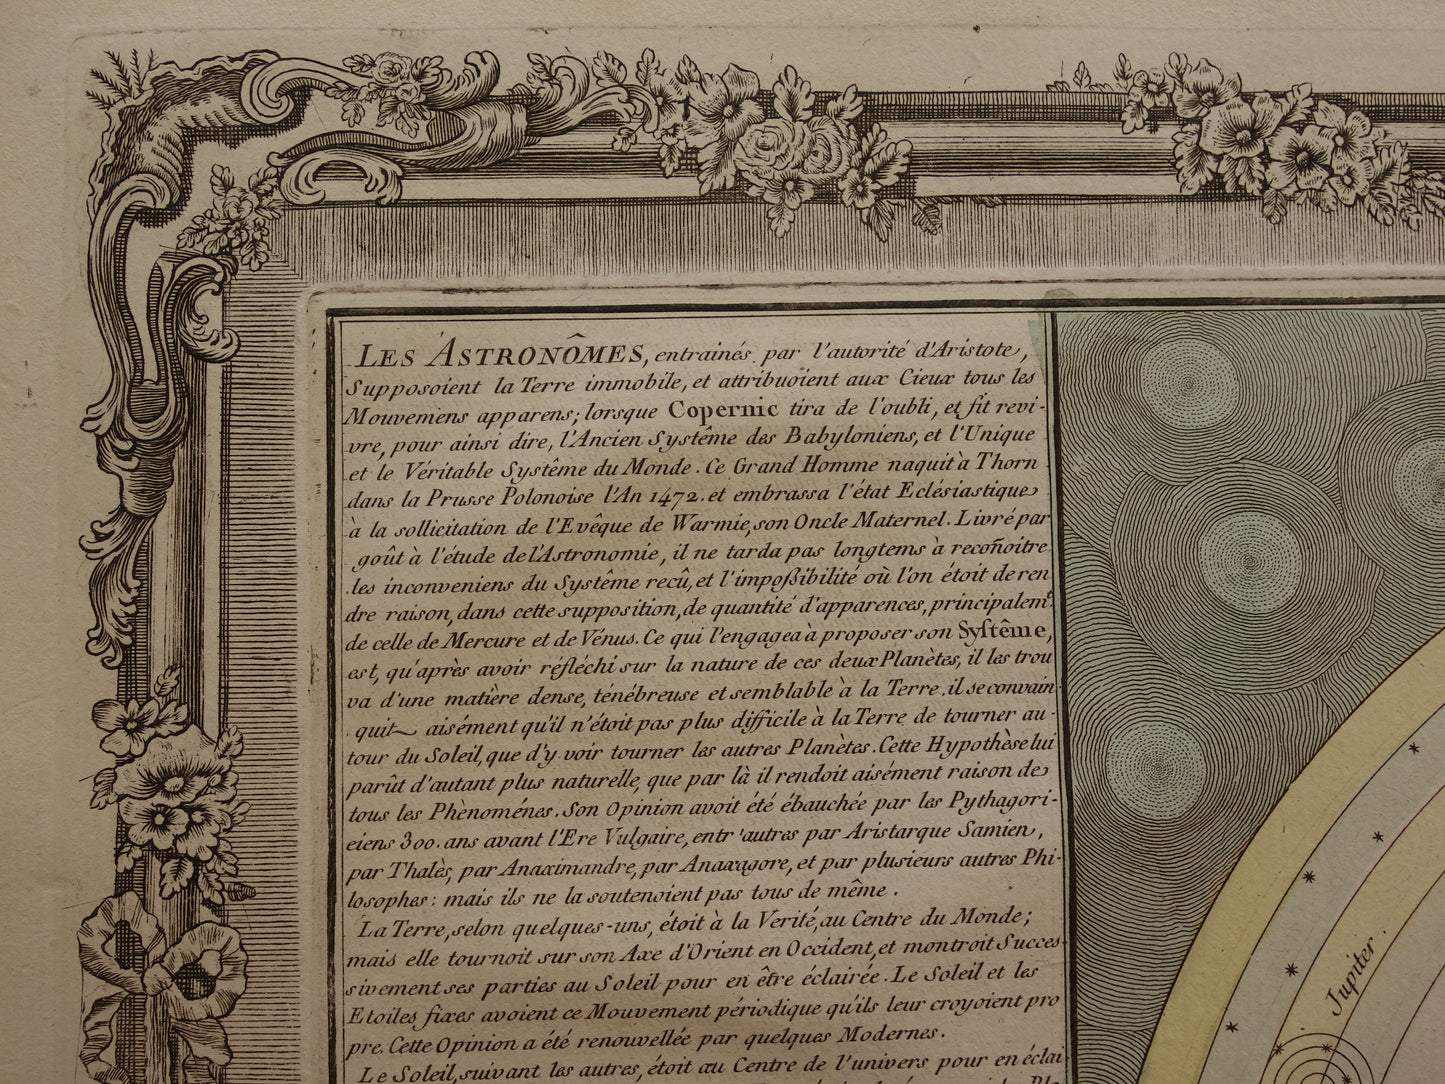 LES ASTRONÔMES, entrainés par l'autorité d'Aristote,
Supposoient la Terre immobile, et attribuoïent aux Cieux tous les
Mouvemens apparens; lorsque Copernic tira de l'oubli, et fit revi-
vre, pour ainsi dire, l'Ancien Systême des Babyloniens, et l'Unique
et le Véritable Systême du Monde. Ce Grand Homme naquit à Thorn
dans la Prusse Polonoise l'An 1472. et embrassa l'état Eclésiastique
à la sollicitation de l'Evêque de Warmie, son Oncle Maternel. Livré par
goût à l'étude de l'Astronomie, il ne tarda pas longtems à recoñoitre
les inconveniens du Systême recû, et l'impoßibilité où l'on étoit de ren
dre raison, dans cette supposition, de quantité d'apparences, principalemt.
de celle de Mercure et de Vénus. Ce qui l'engagea à proposer son Syſtême,
est, qu'après avoir réfléchi sur la nature de ces deux Planètes, il les trou
va d'une matière dense, ténébreuse et semblable à la Terre. il se convain
quit aisément qu'il n'étoit pas plus difficile à la Terre de tourner au-
tour du Soleil, que d'y voir tourner les autres Planètes. Cette Hypothèse lui
parût d'autant plus naturelle, que par là il rendoit aisément raison de
tous les Phènoménes. Son Opinion avoit été ébauchée par les Pythagori-
eiens 300. ans avant l'Ere Vulgaire, entr'autres par Aristarque Samien,
par Thalès, par Anaximandre, par Anaxagore, et par plusieurs autres Phi-
losophes: mais ils ne la soutenoient pas tous de même.
La Terre, selon quelques-uns, étoit à la Verité, au Centre du Monde;
mais elle tournoit sur son Axe d'Orient en Occident, et montroit Succes-
sivement ses parties au Soleil pour en être éclairée. Le Soleil et les
Etoiles fixes avoient ce Mouvement périodique qu'ils leur croyoient pro
pre. Cette Opinion a été renouvellée par quelques Modernes.
Le Soleil, suivant les autres, étoit au Centre de l'univers pour en éclai-
Jupiter.